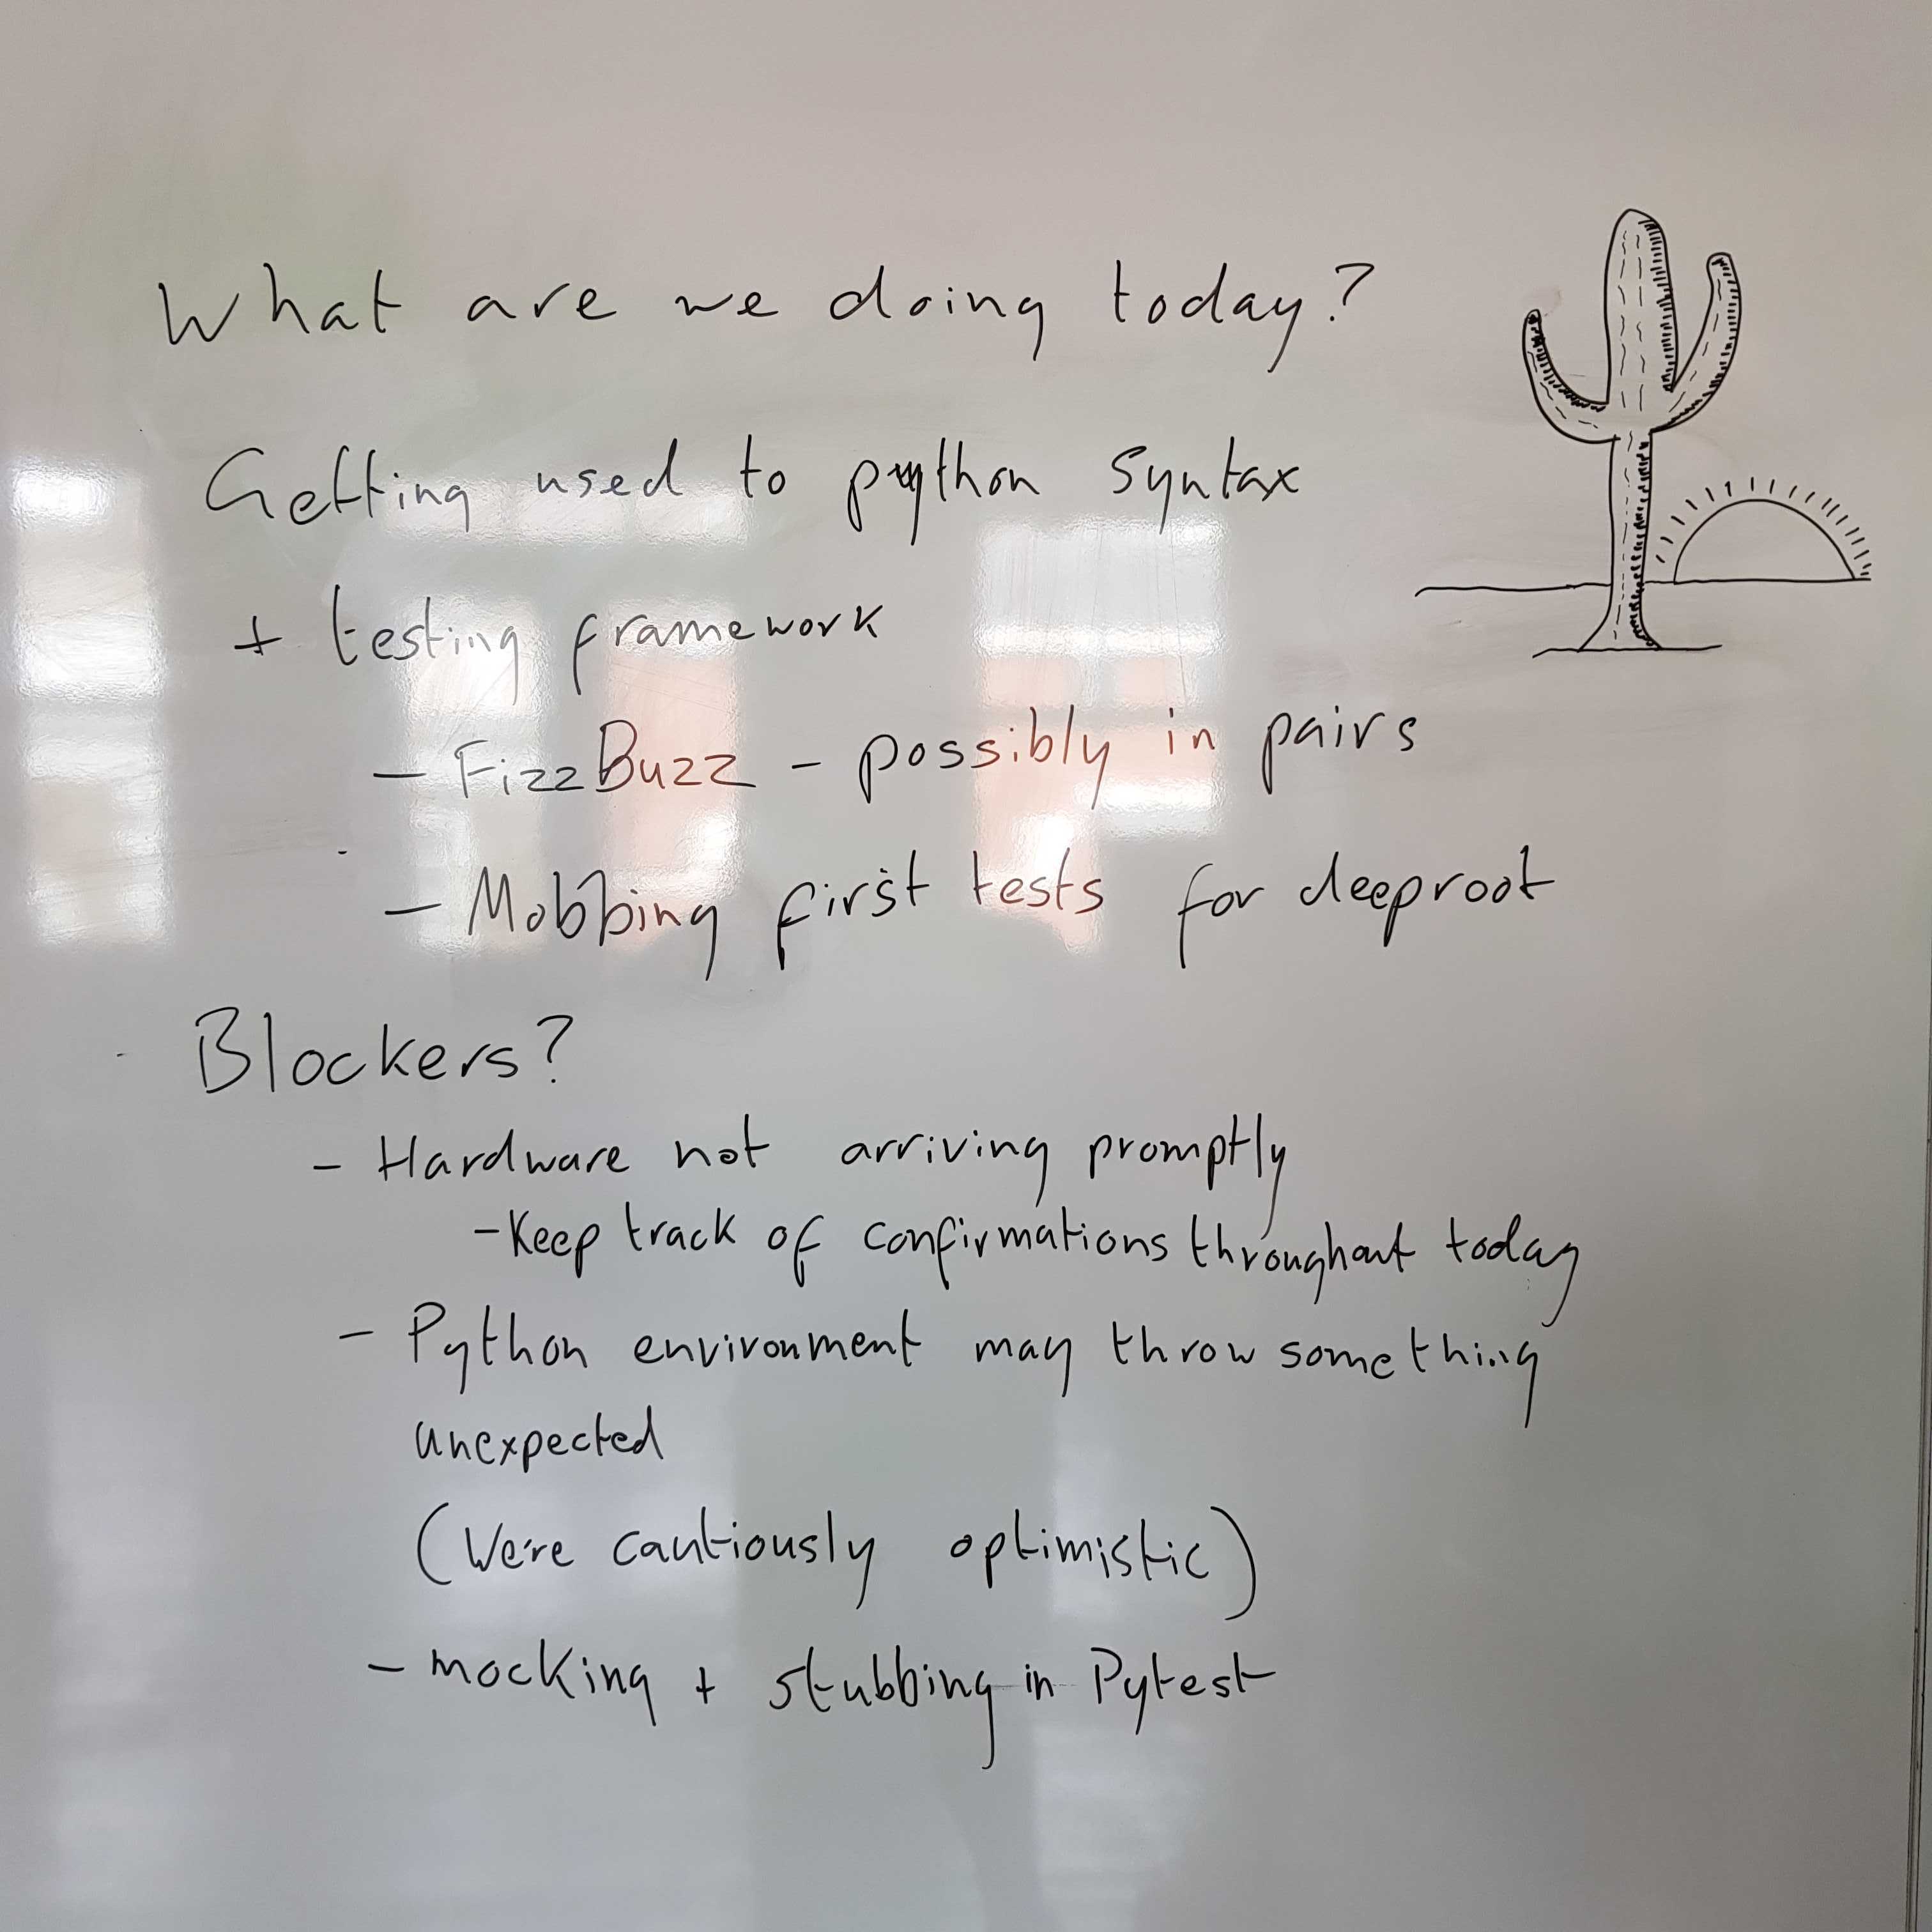 What are we doing today?
Getting used to python syntax
+ testing framework
- FizzBuzz - possibly in pairs
- Mobbing first tests for deeproot
Blockers?
- Hardware not arriving promptly
- Keep track of confirmations throughout today
- Python environment may throw something
unexpected
(We're cautiously optimistic)
- mocking + stubbing in Pytest